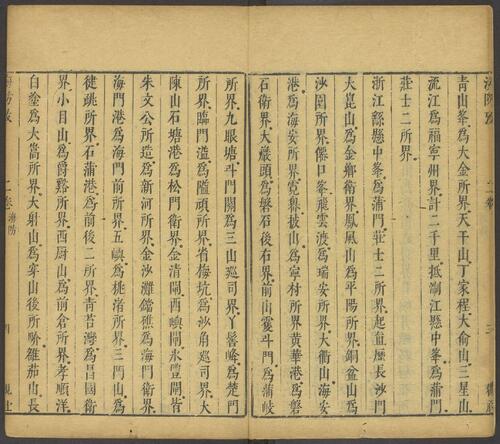 青山峯爲大金所界天千山丁家程大俞山三星山
流江爲福寧州界計二千里抵浙江懸中峯爲蒲門
莊士二所界
浙江縣懸中峯爲蒲門莊士二所界起且歷長沙門
大崑山爲金鄉衛界鳳凰山爲平陽所界銅盆山爲
沙園所界僊口峯飛雲渡爲瑞安所界大衢山海安
港爲海安所界寬𡺚披山爲寧村所界黄華港爲磐
石衛界大巖頭爲磐石後石界前山靈斗門爲蒲岐
所界九眼塘斗門關爲三山廵司界丫髻峰爲楚門
所界臨門溢爲隘頑所界省梅坑爲沙角廵司界大
陳山石塘港爲松門衛界金清閘西嶼閘永豐閘皆
朱文公所造爲新河所界金沙灘鐺礁爲海門衛界
海門港爲海門前所界五嶼爲桃渚所界三門山爲
健跳所界石蒲港爲前後二所界青苔灣爲昌國衛
界小目山爲爵谿所界西厨山爲前倉所界孝順洋
白塗爲大嵩所界大射山爲穿山後所界雞茄山長
二卷 海防